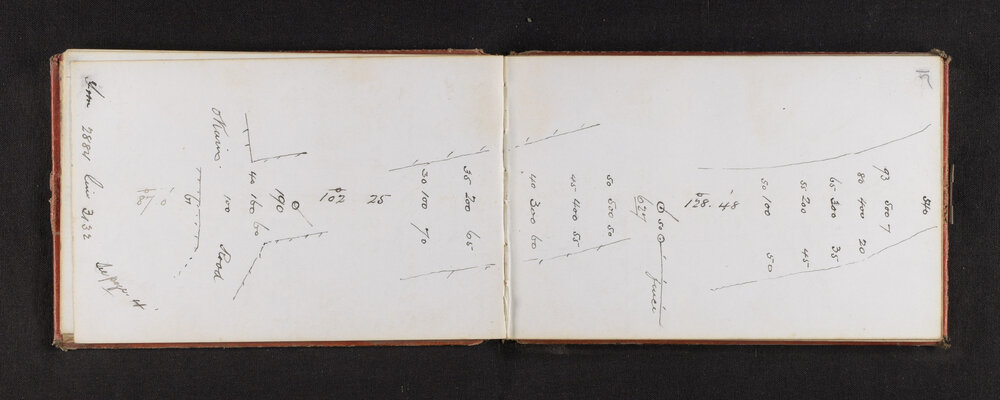 15
540
93 500 7
80 400 20
65 300 35
55 200 45
50 100 50
48
128.
50 fence
627
50 500 50
45 400 55
40 300 60
35 200 65
30 100 70
25
102
190
40 160 60
100 Road
Okains.
61
87.0
See page 4
From 2884 Line 3132